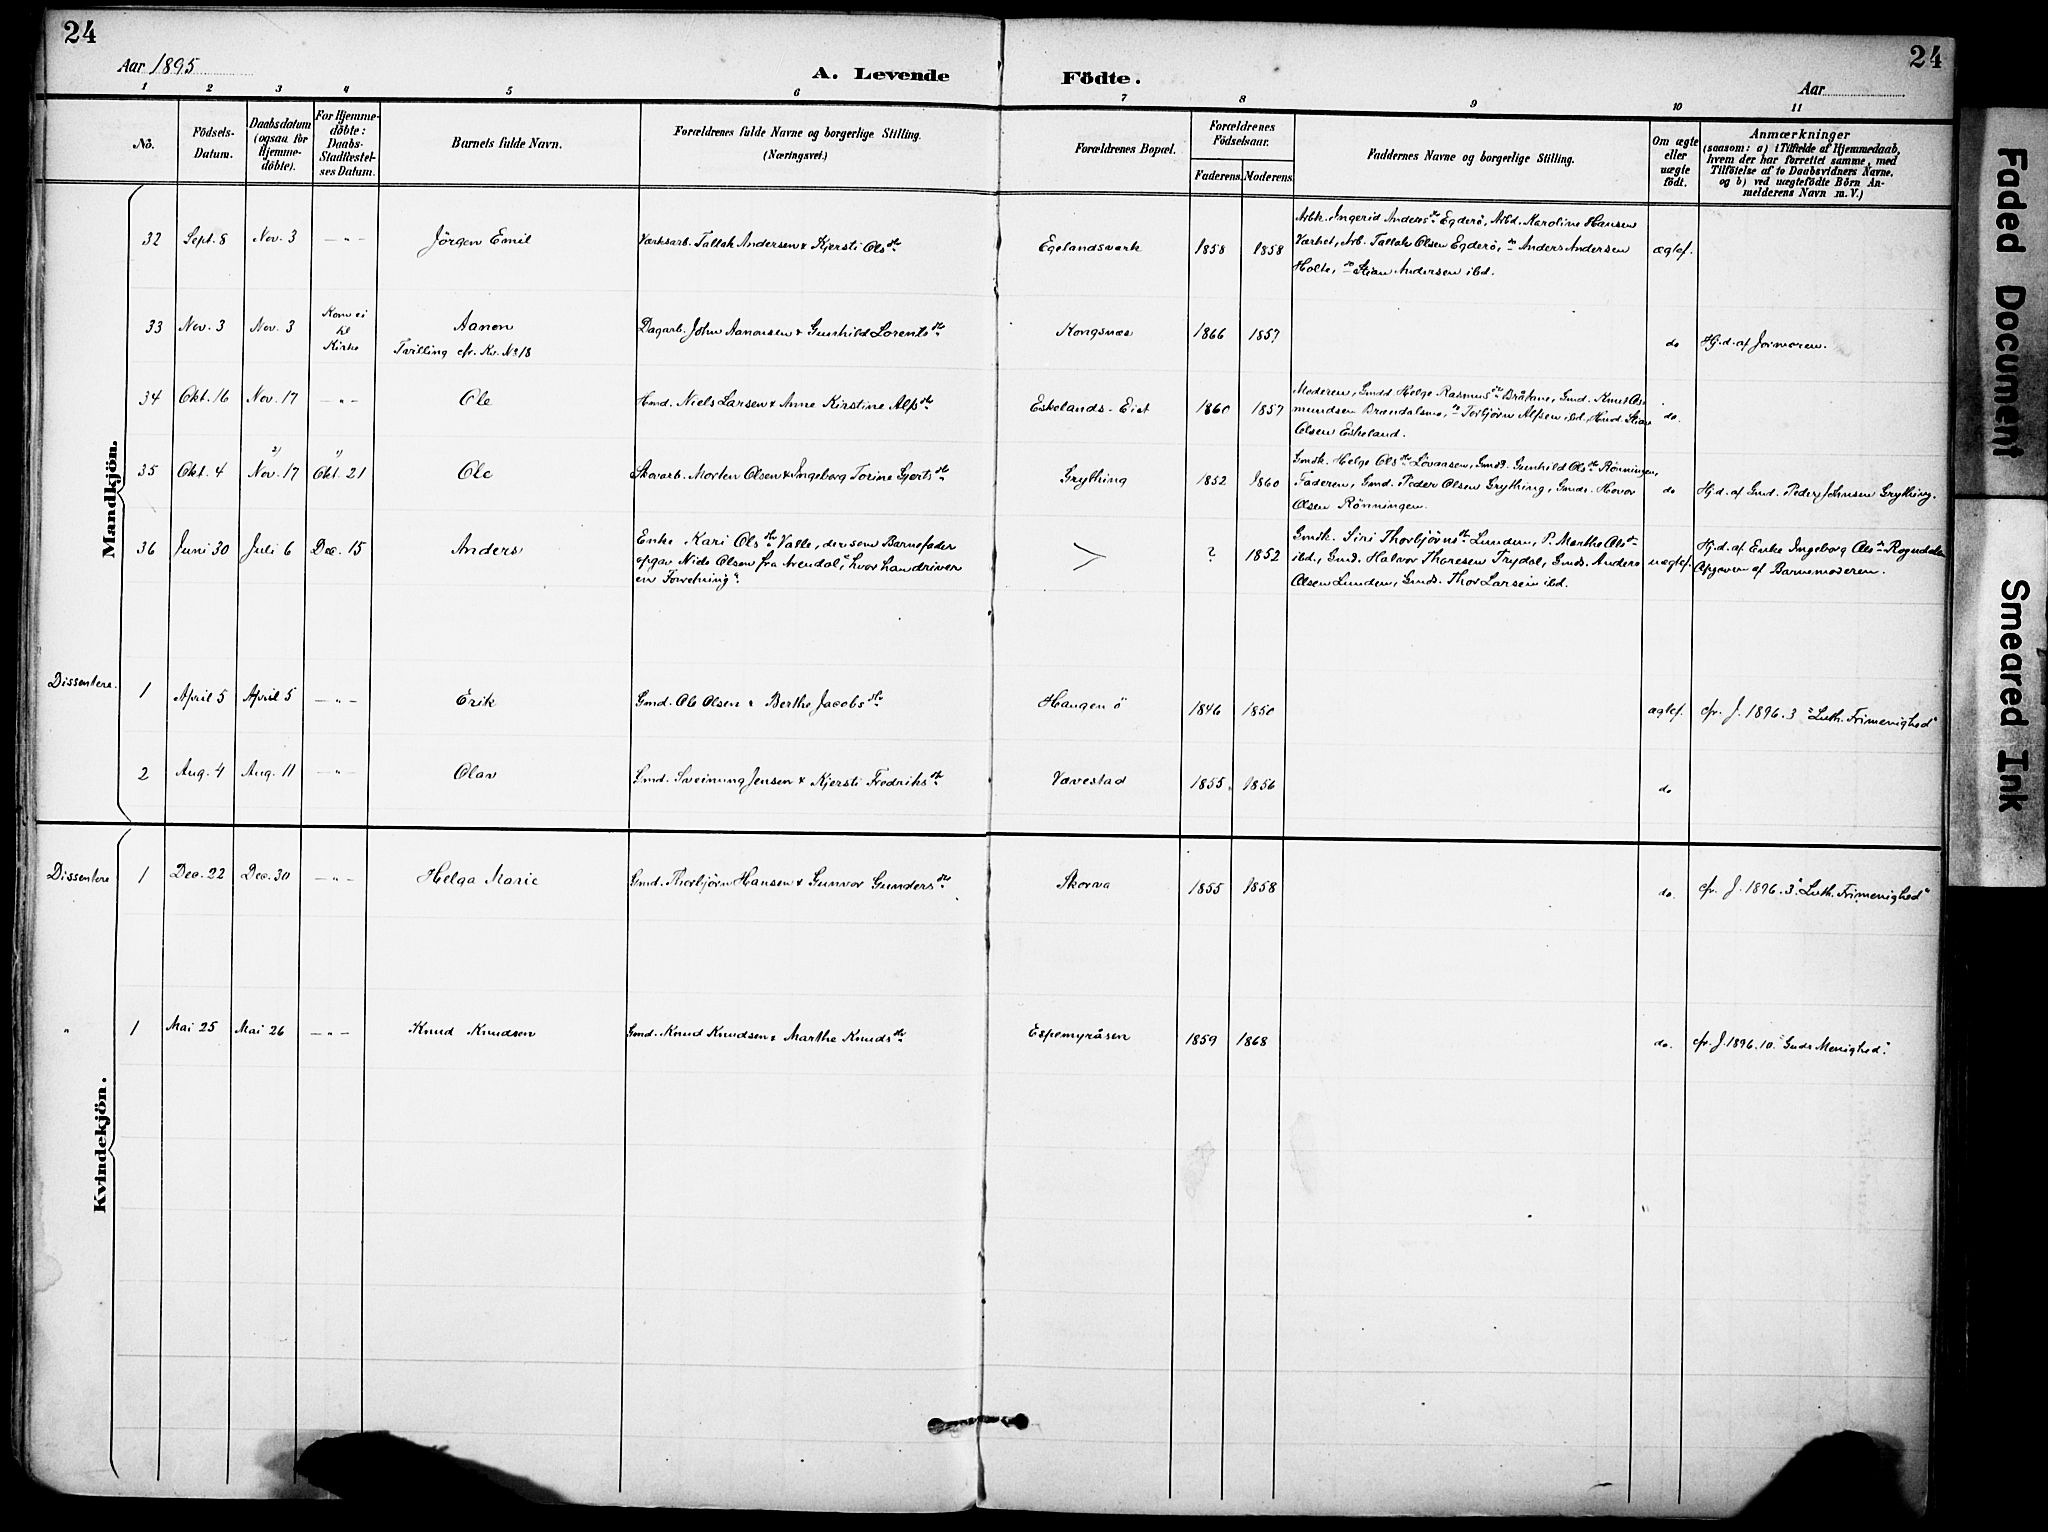 24
24
Aar 1895
A. Levende Födte.
Aar
1 2 3 4 5 6 7 8 9 10 11
No.
Födsels-Datum.
Daabsdatum (ogsaa for Hjemme-döbte).
For Hjemme-döbte: Daabs-Stadfæstel-ses Datum.
Barnets fulde Navn.
Forældrenes fulde Navne og borgerlige Stilling. (Næringsvei.)
Forældrenes Bopæl.
Forældrenes Födselsaar.
Faderens. Moderens.
Faddernes Navne og borgerlige Stilling.
Om ægte eller uægte födt.
Anmærkninger
(saasom: a) i Tilfælde af Hjemmedaab,
hvem der har forrettet samme, med
Tilföielse af to Daabsvidners Navne,
og b) ved uægtefödte Börn An-
melderens Navn m. V.)
Mandkjön.
32 Sept. 8 Nov. 3 — " — Jörgen Emil Værksarb. Tallak Andersen & Kjersti Olsdtr Egelandsverk 1858 1858
Arbk. Ingerid Andersdtr Egderö, Arbd. Karoline Hansen
Værket, Arb. Tallak Olsen Egderö, do Anders Andersen
Holte, do Stian Andersen ibd.
ægtef.
33 Nov. 3 Nov. 3 Kom ei til Kirke Aanon
Tvilling cfr. Kv. No 18
Dagarb. John Aanonsen & Gunhild Lorentsdtr Kongsnæs 1866 1857 do Hj.d. af Jormoren.
34 Okt. 16 Nov. 17 — " — Ole Hmd. Niels Larsen & Anne Kirstine Alfsdtr Eskelands-Eiet 1860 1857
Moderen, Gmdd Helge Rasmusdtr Bråtane, Gmd. Knut As-
mundsen Brændalsmo, do Torbjörn Alfsen ibd, Hmd. Stian
Olsen Eskeland.
do.
35 Okt. 4 2) Nov. 17 1) Okt. 21 Ole Skovarb. Morten Olsen & Ingeborg Torine Gjertsdtr Grytting 1852 1860
Gmdk. Helge Olsdtr Lövaasen, Gmdd. Gunhild Olsdtr Rönningen,
Faderen, Gmd. Peder Olsen Grytting, Gmds. Hovor
Olsen Rönningen.
do Hj.d. af Gmd. Peder Johnsen Grytting.
36 Juni 30 Juli 6 Dec. 15 Anders Enke Kari Olsdtr Valle, der som Barnefader
opgav Niels Olsen fra Arendal, "hvor han driver
en Forretning".
? 1852
Gmdk. Siri Thorbjörnsdtr Lunden, P. Marthe Olsdtr
ibd., Gmd. Halvor Thoresen Trydal, Gmds. Anders
Olsen Lunden, Gmds. Thor Larsen ibd.
uægtef.
Hj.d. af Enke Ingeborg Olsdtr Rogndalen
Opgaven af Barnemoderen.
Dissentere. 1 April 5 April 5 — " — Erik Gmd. Ole Olsen & Berthe Jacobsdtr Haugen ö 1846 1850 ægtef. cfr. J. 1896. 3 "Luth. Frimenighed"
2 Aug. 4 Aug. 11 — " — Olav Gmd. Sveinung Jensen & Kjersti Fredriksdtr Vævestad 1855 1856 do
Kvindekjön.
Dissentere 1 Dec. 22 Dec. 30 — " — Helga Marie Gmd. Thorbjörn Hansen & Gunvor Gundersdtr Skorva 1855 1858 do. cfr. J. 1896. 3. "Luth. Frimenighed"
" 1 Mai 25 Mai 26 — " — Knud Knudsen Gmd. Knud Knudsen & Marthe Knudsdtr Espemyråsen 1859 1868 do. cfr. J. 1896. 10. "Guds Menighed".
Faded Document
Smeared Ink